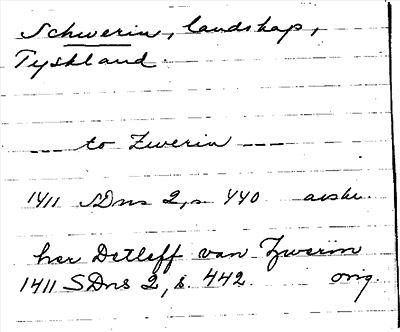 Schwerin, landskap,
Tyskland.
--- to Zwerin ---
1411 SDns 2, s. 440 avskr.
her Detleff van Zwerin
1411 SDns 2, s. 442 orig